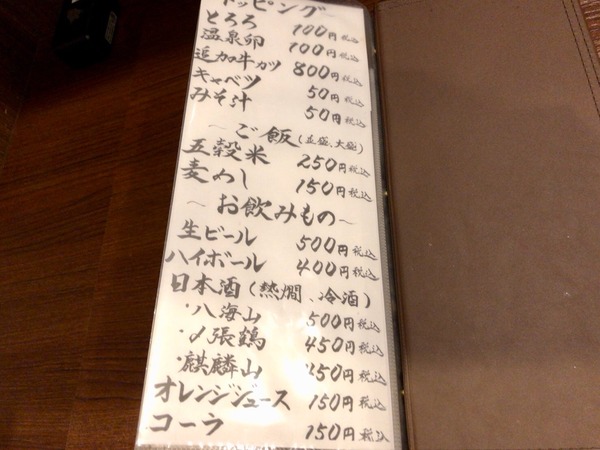 トッピング〜
とろろ 100円税込
温泉卵 100円税込
追加牛カツ 800円税込
キャベツ 50円税込
みそ汁 50円税込
〜ご飯(並盛、大盛)
五穀米 250円税込
麦めし 150円税込
〜お飲みもの〜
生ビール 500円税込
ハイボール 400円税込
日本酒(熱燗、冷酒)
・八海山 500円税込
・〆張鶴 450円税込
・麒麟山 450円税込
オレンジジュース 150円税込
コーラ 150円税込